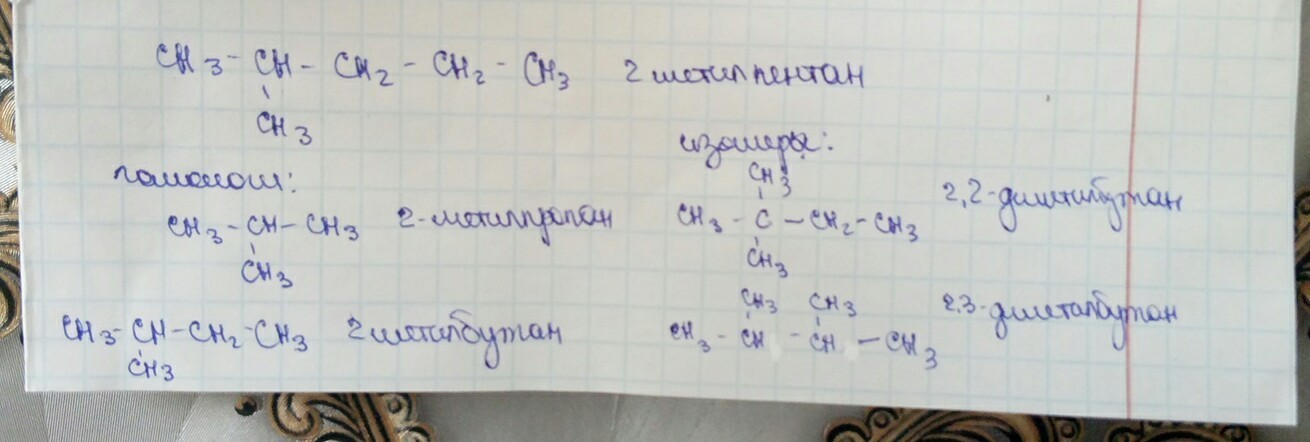 CH3 - CH - CH2 - CH2 - CH3 2 метилпентан
CH3
гомологи:
CH3 - CH - CH3 2-метилпропан
CH3
CH3 - CH - CH2 - CH3 2 метилбутан
CH3
изомеры:
CH3
CH3 - C - CH2 - CH3 2,2-диметилбутан
CH3
CH3 CH3
CH3 - CH - CH - CH3 2.3-диметалбутан